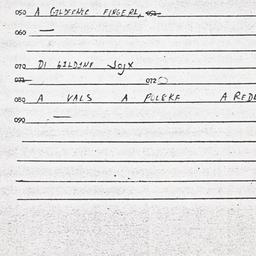 050 A GILDENE FINGERL,
060 —
070 DI GILDENE
071 072
080 A VALS A POLEKE A REDL
090 —